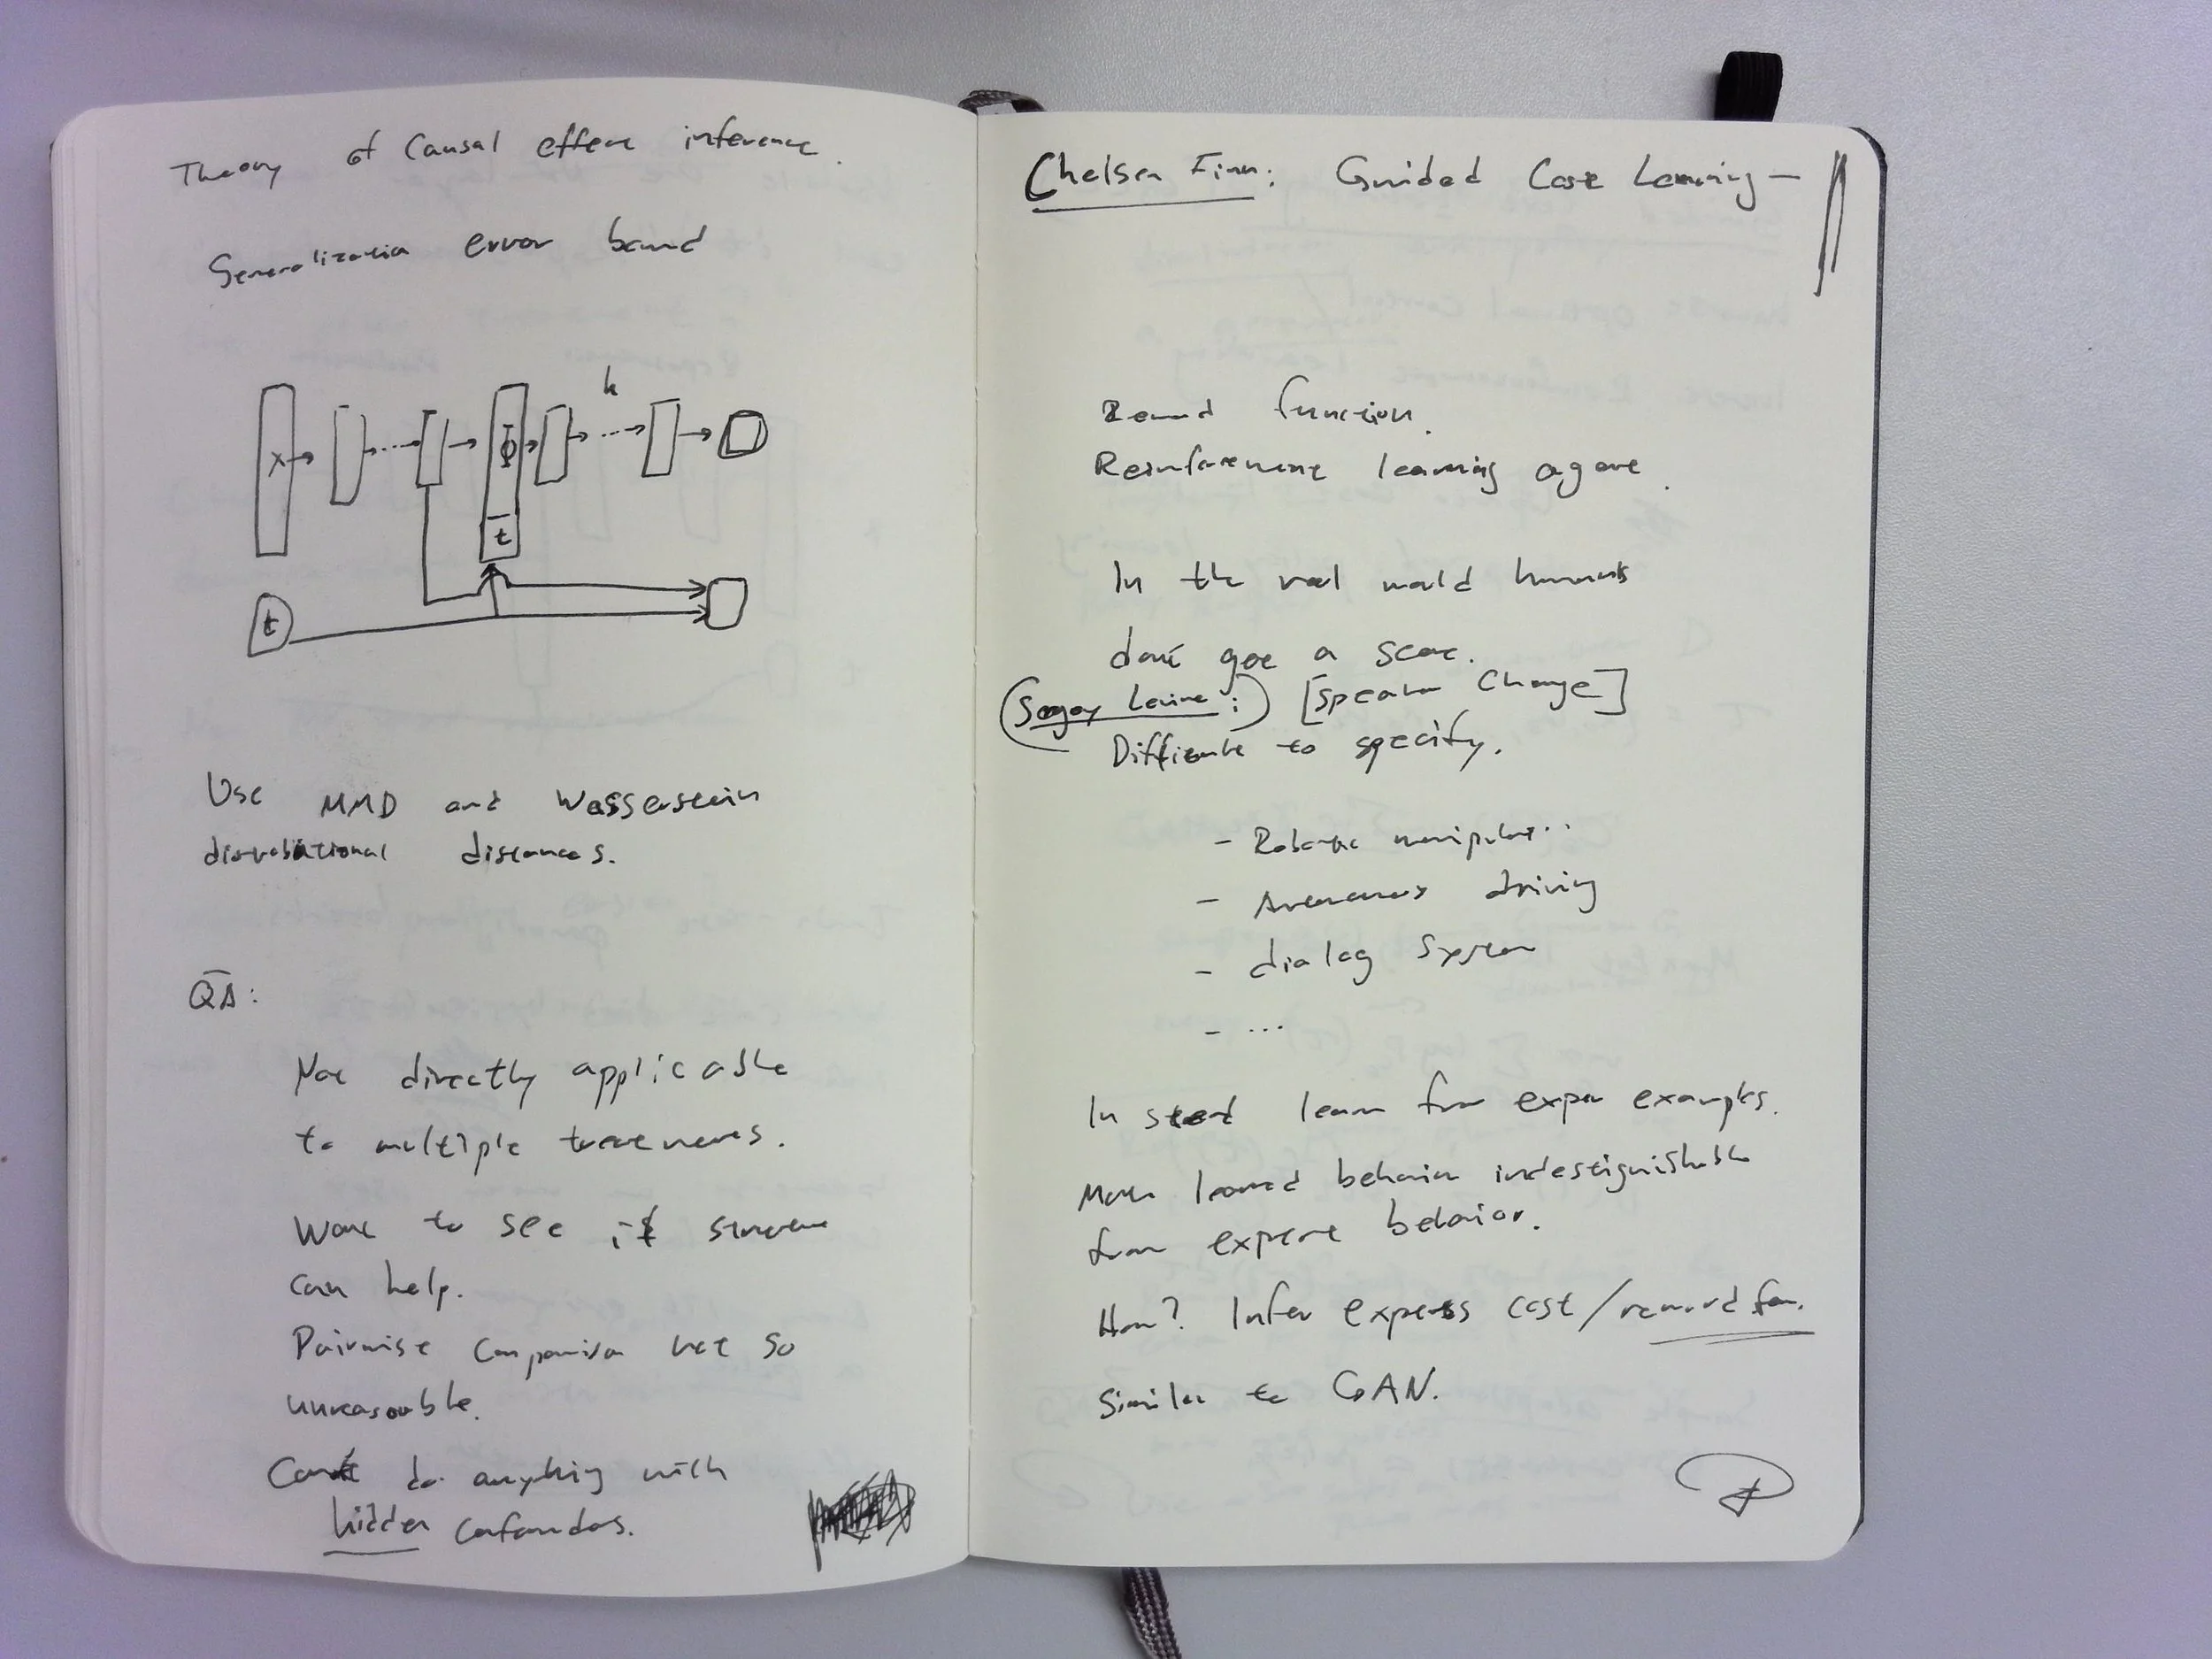 Theory of Causal effect inference.
Generalization error bound
h
x
Φ
t
t
Use MMD and Wasserstein
distributional distances.
QA:
Not directly applicable
to multiple treatments.
Want to see if structure
can help.
Pairwise comparison not so
unreasonable.
Can't do anything with
hidden confounders.
Chelsea Finn: Guided Cost Learning —
Reward function.
Reinforcement learning agent.
In the real world humans
don't get a score.
Sergey Levine: [Speaker Change]
Difficult to specify.
- Robotic manipulat..
- Autonomous driving
- dialog system
- ...
Instead learn from expert examples.
Make learned behavior indestiguishable
from expert behavior.
How? Infer experts cost/reward fcn.
Similar to GAN.